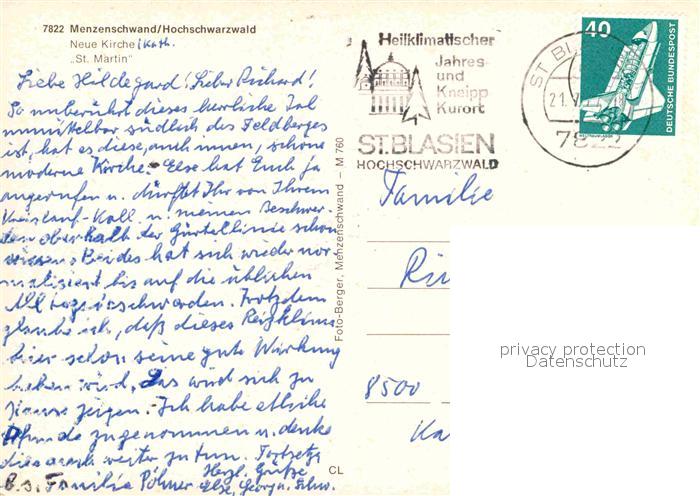 7822 Menzenschwand/Hochschwarzwald
Neue Kirche /kath.
„St. Martin"
Liebe Hildegard! Lieber Richard!
So unberührt dieses herrliche Tal
unmittelbar südlich des Feldberges
ist, hat es diese, auch innen, schöne
moderne Kirche. Else hat Euch ja
angerufen u. dürftet Ihr von Ihrem
Kreislauf-Koll u. meinen Beschwer-
den oberhalb der Gürtellinie schon
wissen. Beides hat sich wieder nor-
malisiert bis auf die üblichen
Alltagsbeschwerden. Trotzdem
glaube ich, daß dieses Reizklima
hier schon seine gute Wirkung
haben wird. Das wird sich zu
Hause zeigen. Ich habe etliche
Pfunde zugenommen u. denke
dies auch weiter zu tun.
Herzl. Grüße
B. s. Familie Pöhner Else, Georg u. Schw.
Foto-Berger, Menzenschwand – M 760
CL
Heilklimatischer
Jahres-
und
Kneipp
Kurort
ST. BLASIEN
HOCHSCHWARZWALD
ST. BL
21.
7822
40
DEUTSCHE BUNDESPOST
Familie
8500
privacy protection
Datenschutz